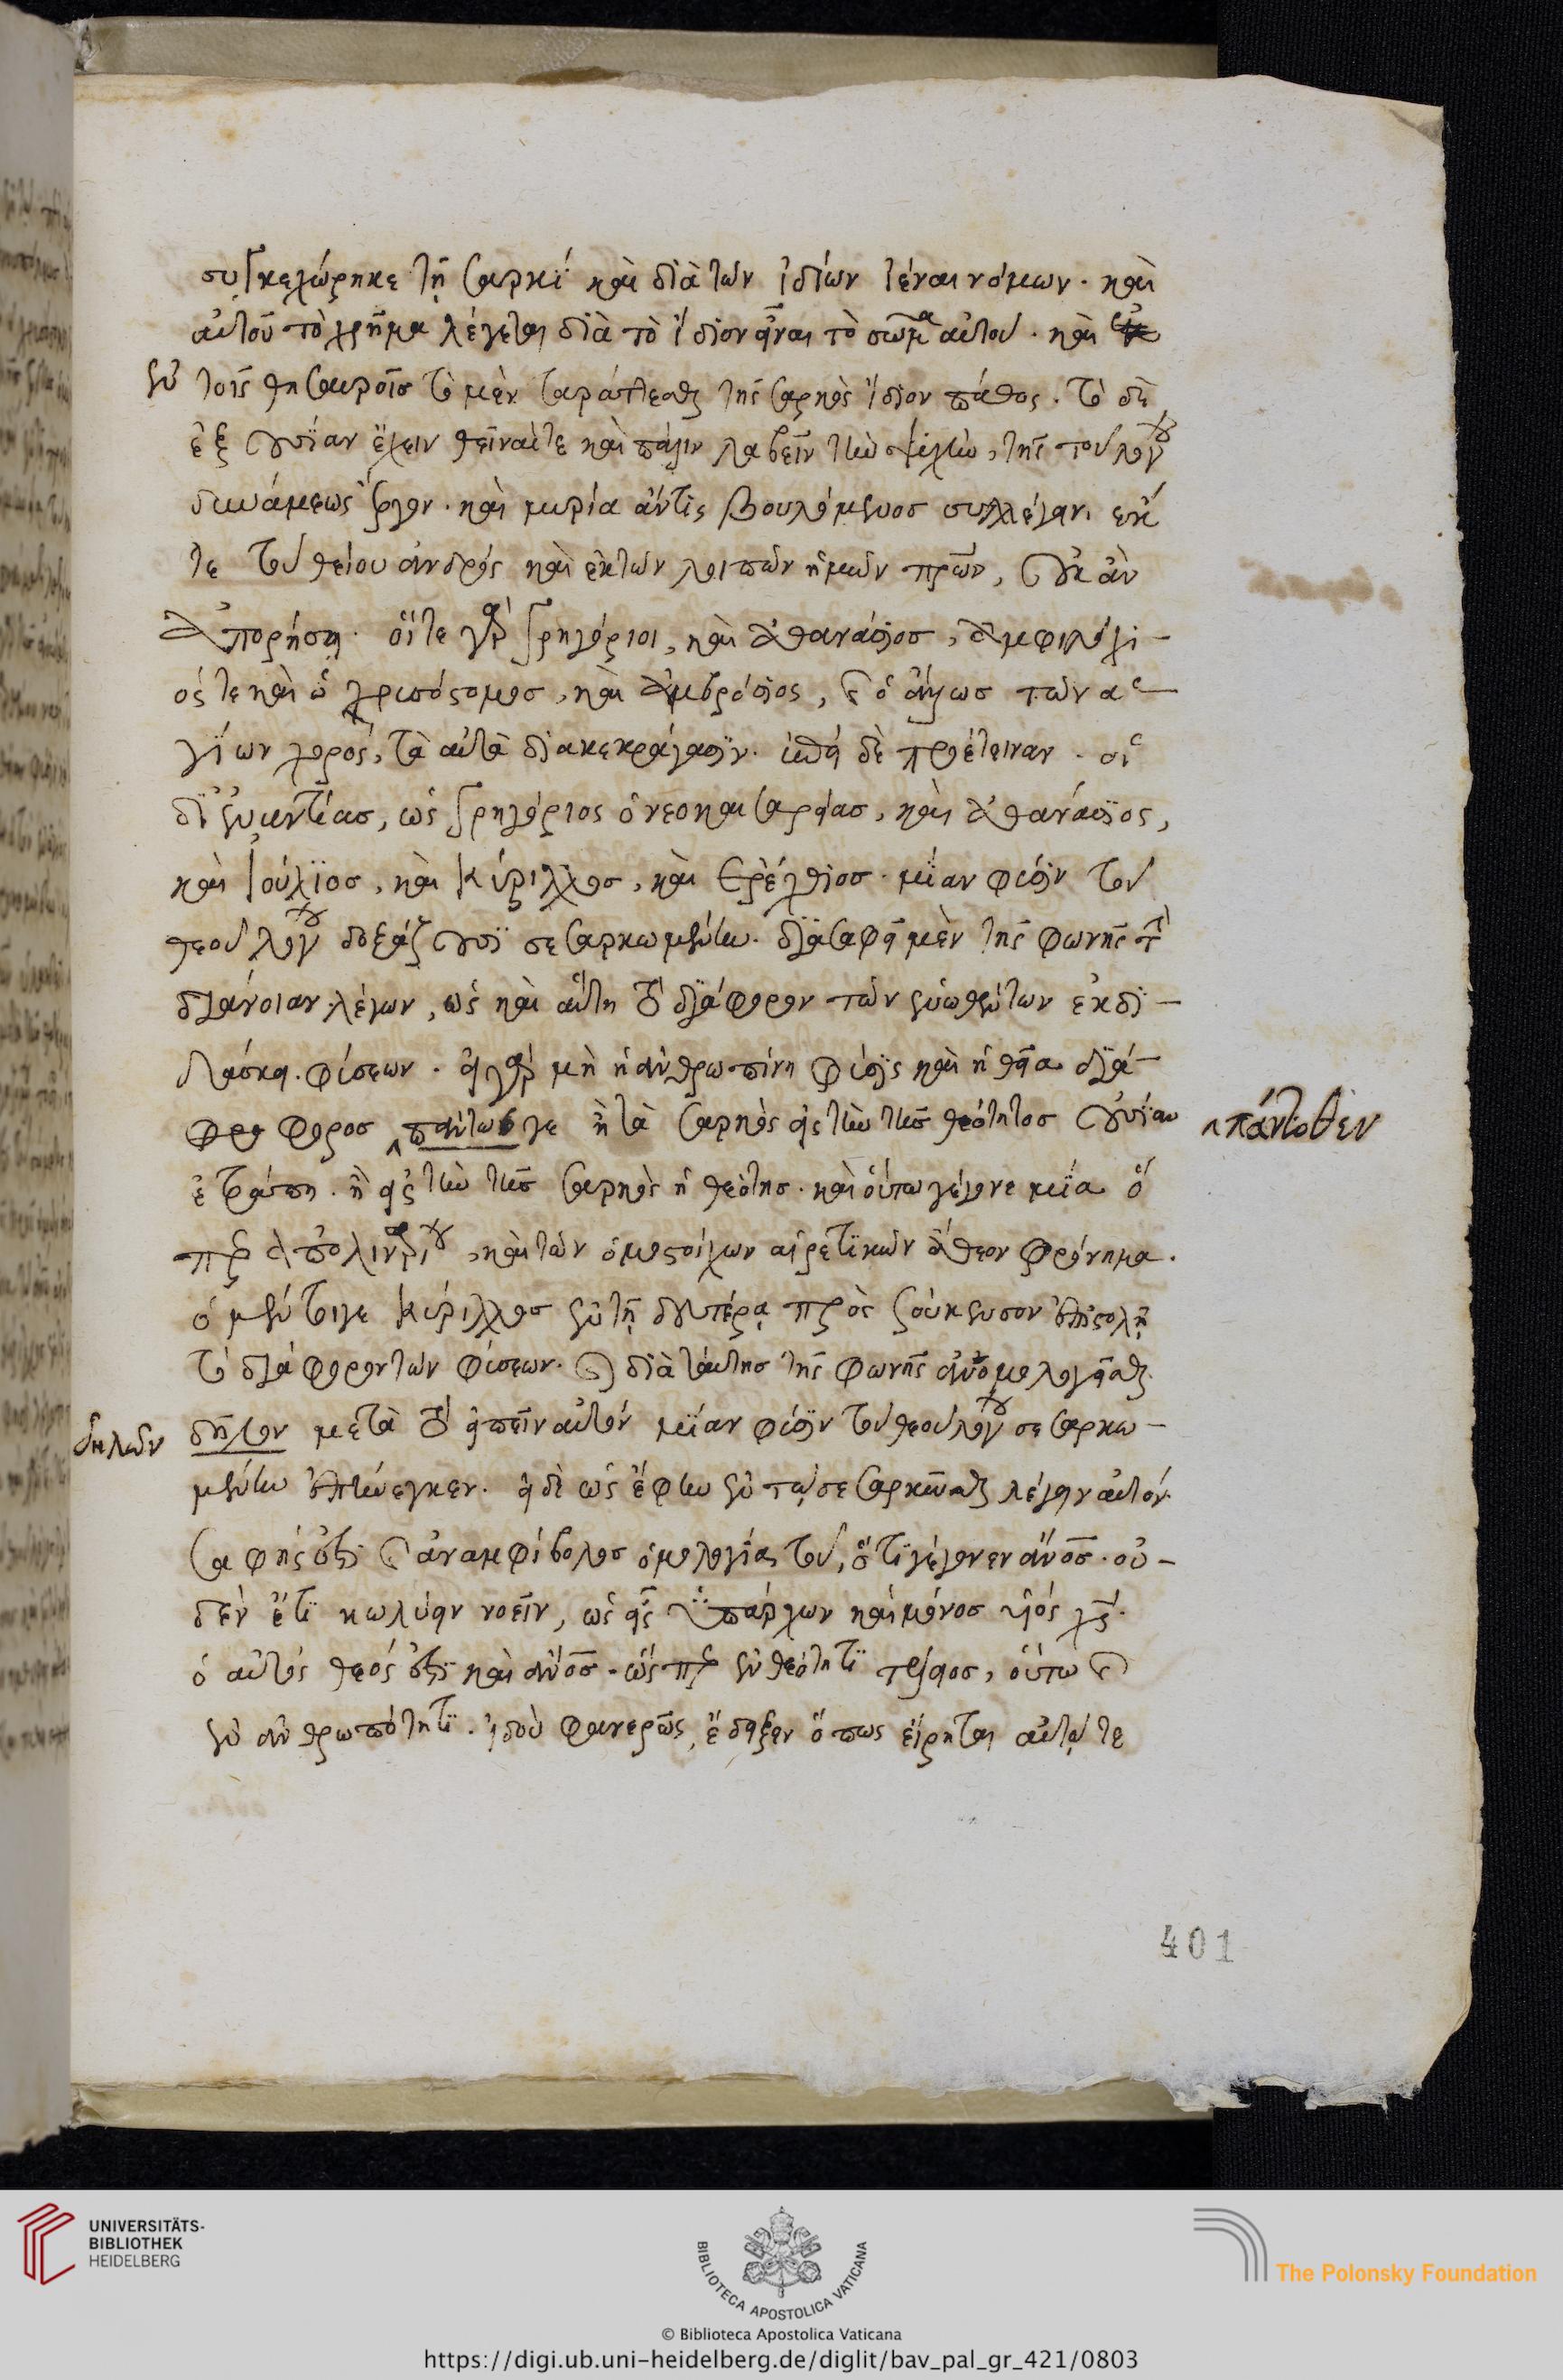 συγκεχώρηκε τῇ σαρκὶ καὶ διὰ τῶν ἰδίων ἰέναι νόμων. καὶ
αὐτοῦ τὸ χρῆμα λέγεται διὰ τὸ ἴδιον εἶναι τὸ σῶμα αὐτοῦ. καὶ
ἐν τοῖς θησαυροῖς τὸ μὲν ταράττεσθαι τῆς σαρκὸς ἴδιον πάθος. τὸ δὲ
ἐξουσίαν ἔχειν θεῖναί τε καὶ πάλιν λαβεῖν τὴν ψυχὴν, τῆς τοῦ λόγου
δυνάμεως ἔργον. καὶ μυρία ἄν τις βουλόμενος συλλέγειν ἐκ
τε τοῦ θείου ἀνδρός καὶ ἐκ τῶν λοιπῶν ἡμῶν πρων, οὐκ ἂν
ἀπορήσῃ. οἵ τε γὰρ Γρηγόριοι, καὶ ἀθανάσιος, ἀμφιλόχι-
ός τε καὶ ὁ χρυσόστομος, καὶ ἀμβρόσιος, καὶ ὁ ἄλλος τῶν ἁ-
γίων χορός, τὰ αὐτὰ διακεκράγασιν. δὲ προέτειναν. οἱ
δι' ἐναντίας, ὡς Γρηγόριος ὁ νεοκαισαρείας, καὶ ἀθανάσιος,
καὶ Ἰούλιος, καὶ Κύριλλος, καὶ Ἐρέχθιος. μίαν φύσιν τοῦ
θεοῦ λόγου δοξάζουσι σεσαρκωμένην. διασαφεῖ μὲν τῆς φωνῆς τὴν
διάνοιαν λέγων, ὡς καὶ αὕτη τὸ διάφορον τῶν ἑνωθέντων ἐκδι-
δάσκει φύσεων. εἰ γὰρ μὴ ἡ ἀνθρωπίνη φύσις καὶ ἡ θεία διά-
φορος πάντως γε ἢ τὰ σαρκὸς εἰς τὴν τῆς θεότητος οὐσίαν ^ πάντοθεν
ἐτράπη. ἢ εἰς τὴν τῆς σαρκὸς ἡ θεότης. καὶ οὕτω γέγονε μία ὅ
περ ἀπολιναρίου, καὶ τῶν ὁμοστοίχων αἱρετικῶν ἄθεον φρόνημα.
ὁ μέντοιγε Κύριλλος ἐν τῇ δευτέρᾳ πρὸς σούκενσον ἐπιστολῇ
τὸ διάφορον τῶν φύσεων. καὶ διὰ ταύτης τῆς φωνῆς ἀνομολογεῖσθαι
δηλῶν δῆλον μετὰ τὸ εἰπεῖν αὐτόν μίαν φύσιν τοῦ θεοῦ λόγου σεσαρκω-
μένην ἐπήνεγκεν. εἰ δὲ ὡς ἔφην ἐν τῷ σεσαρκῶσθαι λέγειν αὐτόν.
σαφής ἐστι καὶ ἀναμφίβολος ὁμολογία τοῦ, ὅτι γέγονεν ἄνος. οὐ-
δὲν ἔτι κωλύει νοεῖν, ὡς εἷς ὑπάρχων καὶ μόνος υἱός χς.
ὁ αὐτός θεός ἐστι καὶ ἄνος. ὥσπερ ἐν θεότητι τέλειος, οὕτω καὶ
ἐν ἀνθρωπότητι. ἰδοὺ φανερῶς, ἔδειξεν ὅπως εἴρηται αὐτῷ τε
401
UNIVERSITÄTS-
BIBLIOTHEK
HEIDELBERG
BIBLIOTECA APOSTOLICA VATICANA
The Polonsky Foundation
© Biblioteca Apostolica Vaticana
https://digi.ub.uni-heidelberg.de/diglit/bav_pal_gr_421/0803